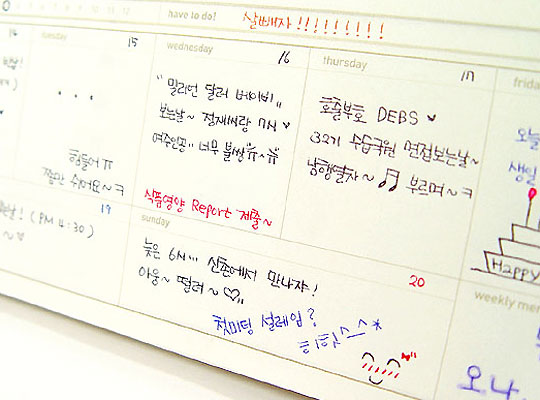 have to do!
살빼자!!!!!!!!!
tuesday
15
...
힘들어ㅠ
쫌만 쉬어요~ㅋ
wednesday
16
"밀리언 달러 베이비"
보는날~
7시
여주인공.. 너무 불쌍ㅠ~ㅠ
식품영양 Report 제출~
thursday
17
호출부호 DEBS ♥
32기 수습국원 면접보는날~
남행열차~ ♫ 부르며~ㅋ
오늘
생일
Happy
19
(PM 4:30)
sunday
20
늦은 6시... 신촌에서 만나자!
아웅~ 떨려~♡..
첫미팅 설레임?
히히힛^-^*
오나